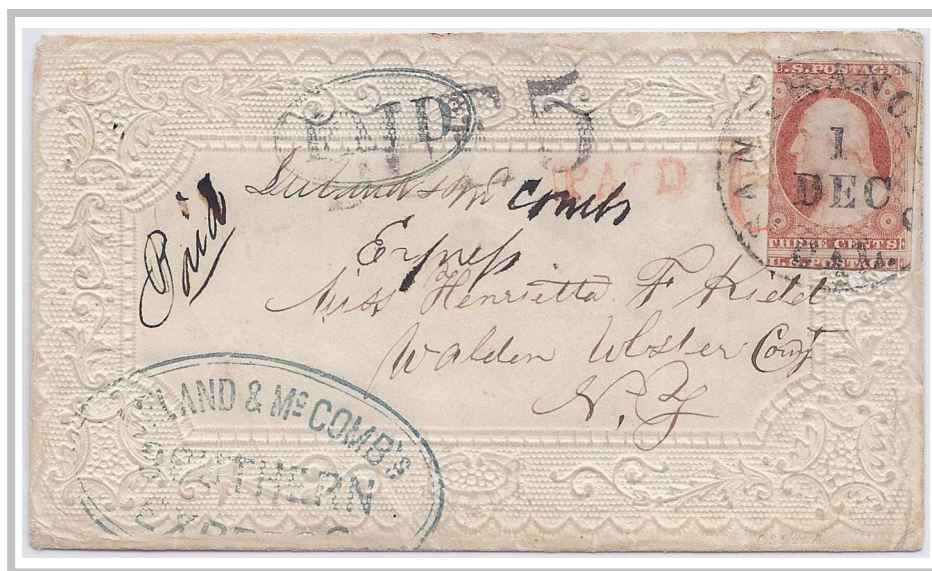 PAID
5
PAID
U.S. POSTAGE
SAN FRANC
1
DEC
CAL.
THREE CENTS
U.S. POSTAGE
Paid
McCombs
Express
Miss Henrietta F Kidd
Walden Ulster Couty
N. Y
LAND & Mc COMB's
SOUTHERN
EXPRESS